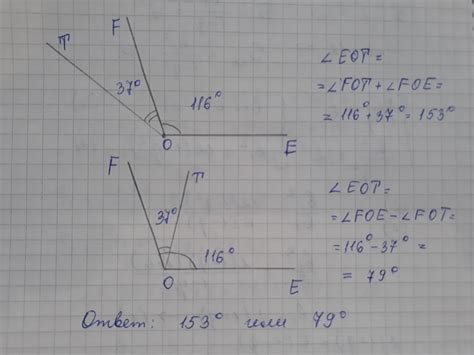 F
T
37°
116°
O
E
∠EOT =
= ∠FOT + ∠FOE =
= 116° + 37° = 153°
F
T
37°
116°
O
E
∠EOT =
= ∠FOE - ∠FOT =
= 116° - 37° =
= 79°
Ответ: 153° или 79°